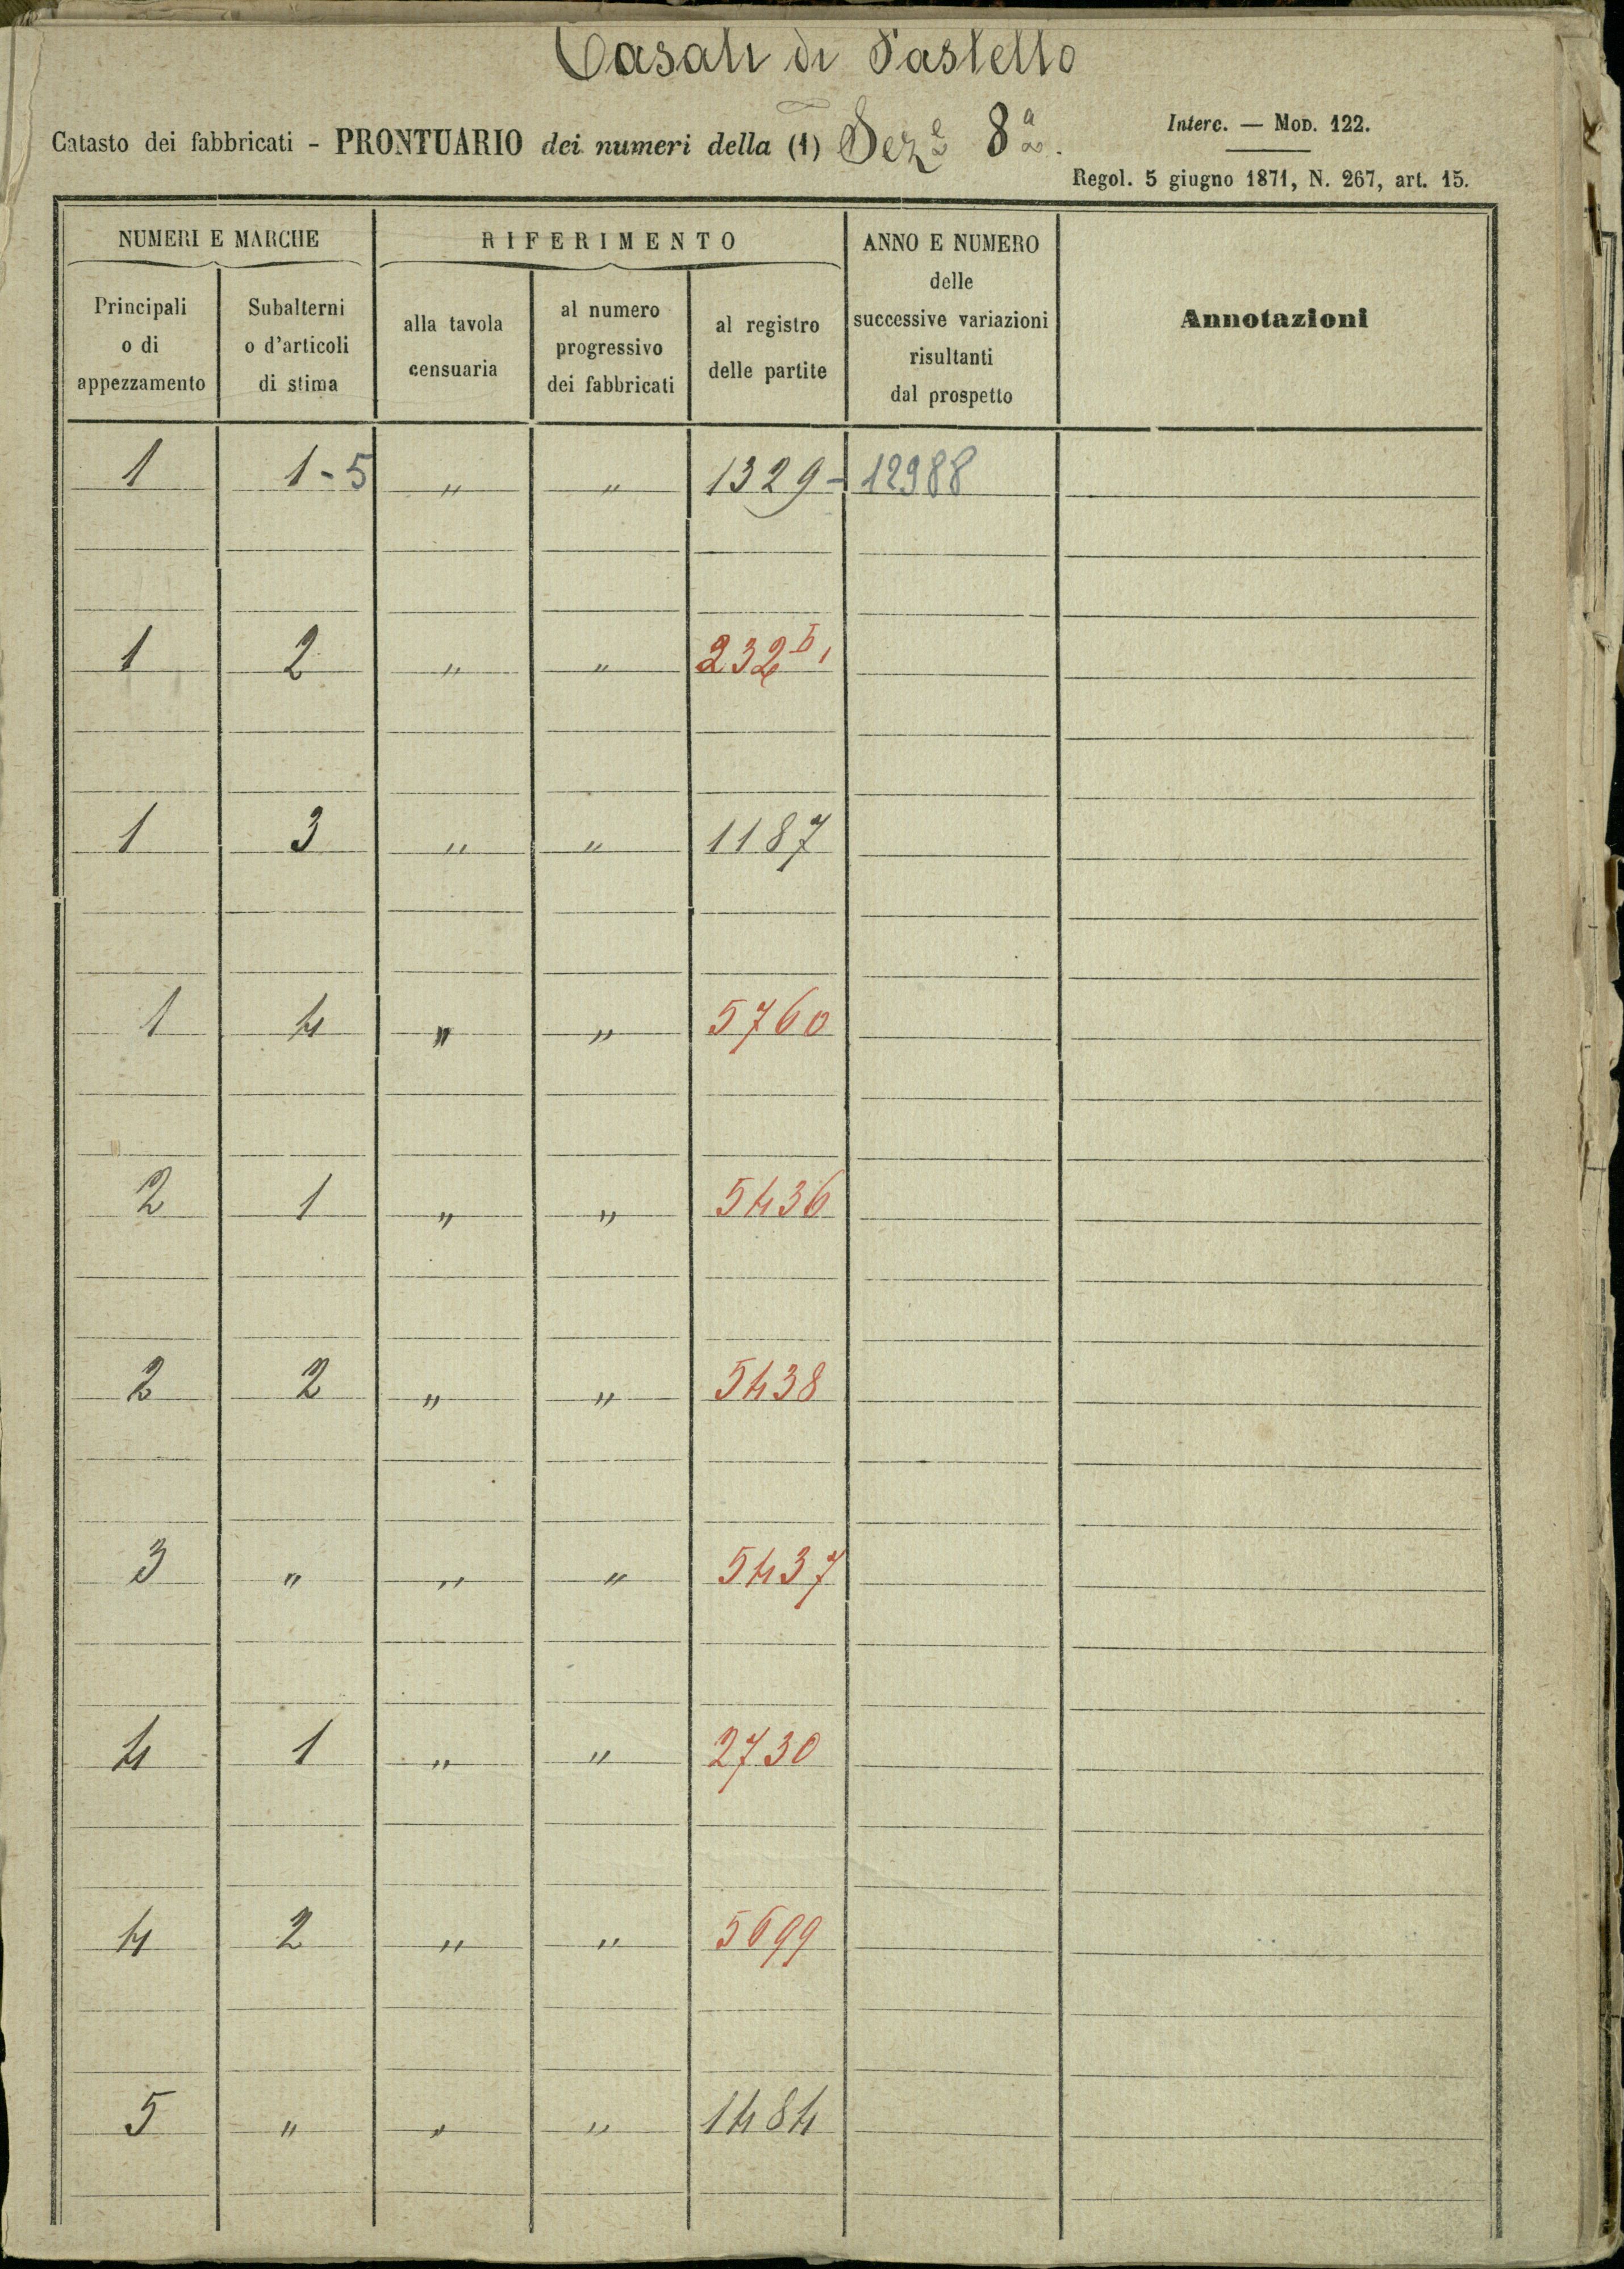 Casali di Pastello
Catasto dei fabbricati - PRONTUARIO dei numeri della (1) Sez.e 8a.
Interc. — Mod. 122.
Regol. 5 giugno 1871, N. 267, art. 15.
NUMERI E MARCHE
RIFERIMENTO
ANNO E NUMERO
delle
successive variazioni
risultanti
dal prospetto
Annotazioni
Principali
o di
appezzamento
Subalterni
o d'articoli
di stima
alla tavola
censuaria
al numero
progressivo
dei fabbricati
al registro
delle partite
1 1-5 " " 1329 - 12988
1 2 " " 232
1 3 " " 1187
1 4 " " 5760
2 1 " " 5436
2 2 " " 5438
3 " " " 5437
4 1 " " 2730
4 2 " " 5699
5 " " " 1484